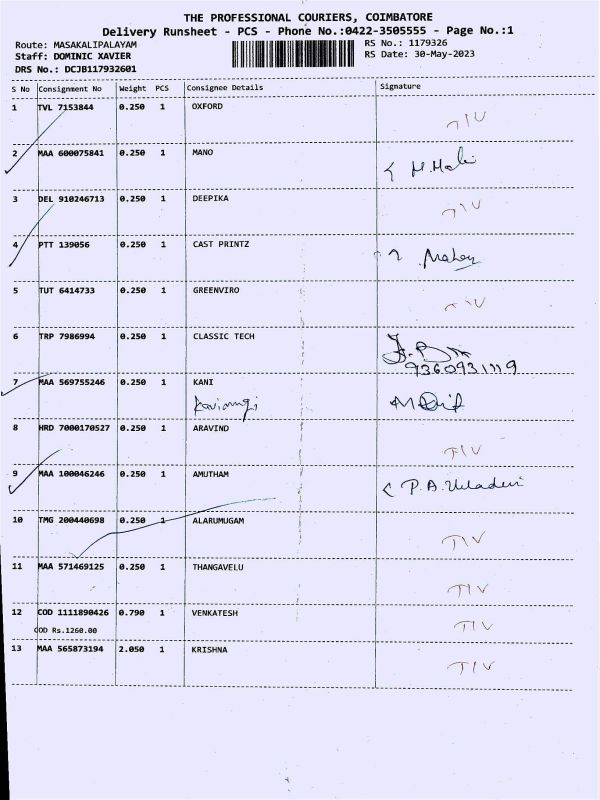 THE PROFESSIONAL COURIERS, COIMBATORE
Delivery Runsheet - PCS - Phone No.:0422-3505555 - Page No.:1
Route: MASAKALIPALAYAM RS No.: 1179326
Staff: DOMINIC XAVIER RS Date: 30-May-2023
DRS No.: DCJB117932601
S No Consignment No Weight PCS Consignee Details Signature
1 TVL 7153844 0.250 1 OXFORD TIV
2 MAA 600075841 0.250 1 MANO
3 DEL 910246713 0.250 1 DEEPIKA TIV
4 PTT 139056 0.250 1 CAST PRINTZ
5 TUT 6414733 0.250 1 GREENVIRO TIV
6 TRP 7986994 0.250 1 CLASSIC TECH
9360931119
7 MAA 569755246 0.250 1 KANI
8 HRD 7000170527 0.250 1 ARAVIND TIV
9 MAA 100046246 0.250 1 AMUTHAM
10 TMG 200440698 0.250 1 ALARUMUGAM TIV
11 MAA 571469125 0.250 1 THANGAVELU TIV
12 COD 1111890426 0.790 1 VENKATESH TIV
COD Rs.1260.00
13 MAA 565873194 2.050 1 KRISHNA TIV